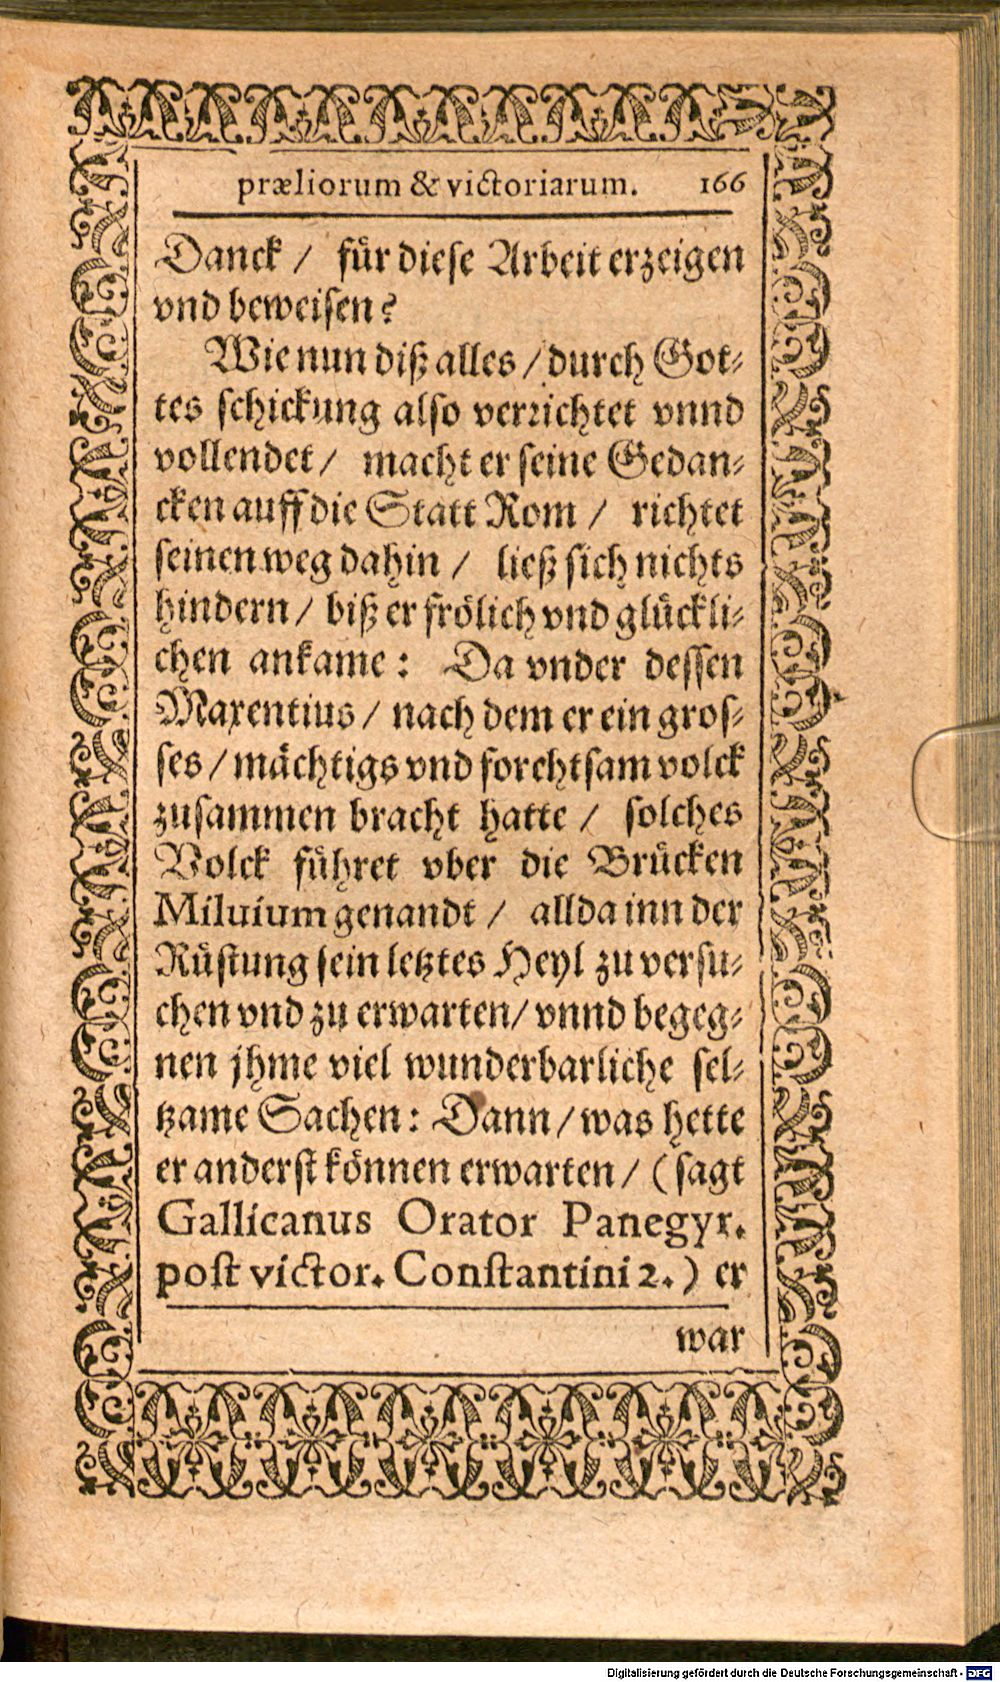 præliorum & victoriarum. 166
Danck / für diese Arbeit erzeigen
vnd beweisen?
Wie nun diß alles / durch Got-
tes schickung also verrichtet vnnd
vollendet / macht er seine Gedan-
cken auff die Statt Rom / richtet
seinen weg dahin / ließ sich nichts
hindern / biß er frölich vnd glückli-
chen ankame: Da vnder dessen
Maxentius / nach dem er ein gros-
ses / mächtigs vnd forchtsam volck
zusammen bracht hatte / solches
Volck führet vber die Brücken
Miluium genandt / allda inn der
Rüstung sein letztes Heyl zu versu-
chen vnd zu erwarten / vnnd begeg-
nen jhme viel wunderbarliche sel-
tzame Sachen: Dann / was hette
er anderst können erwarten / (sagt
Gallicanus Orator Panegyr.
post victor. Constantini 2.) er
war
Digitalisierung gefördert durch die Deutsche Forschungsgemeinschaft - DFG